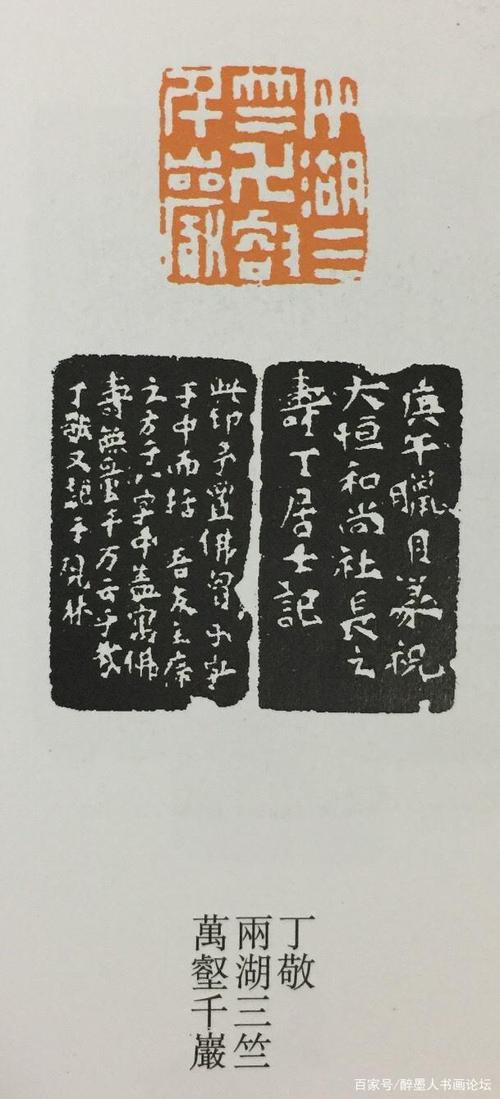 兩湖三
竺卍壑
千巖
庚午臘月篆祝
大恒和尚社長之
壽丁居士記
此印予置佛胷字
于中而括 吾友主席
之方于八字中蓋寓佛
壽無量千万云乎哉
丁敬又題于硯林
丁敬
兩湖三竺
萬壑千巖
百家号/醉墨人书画论坛